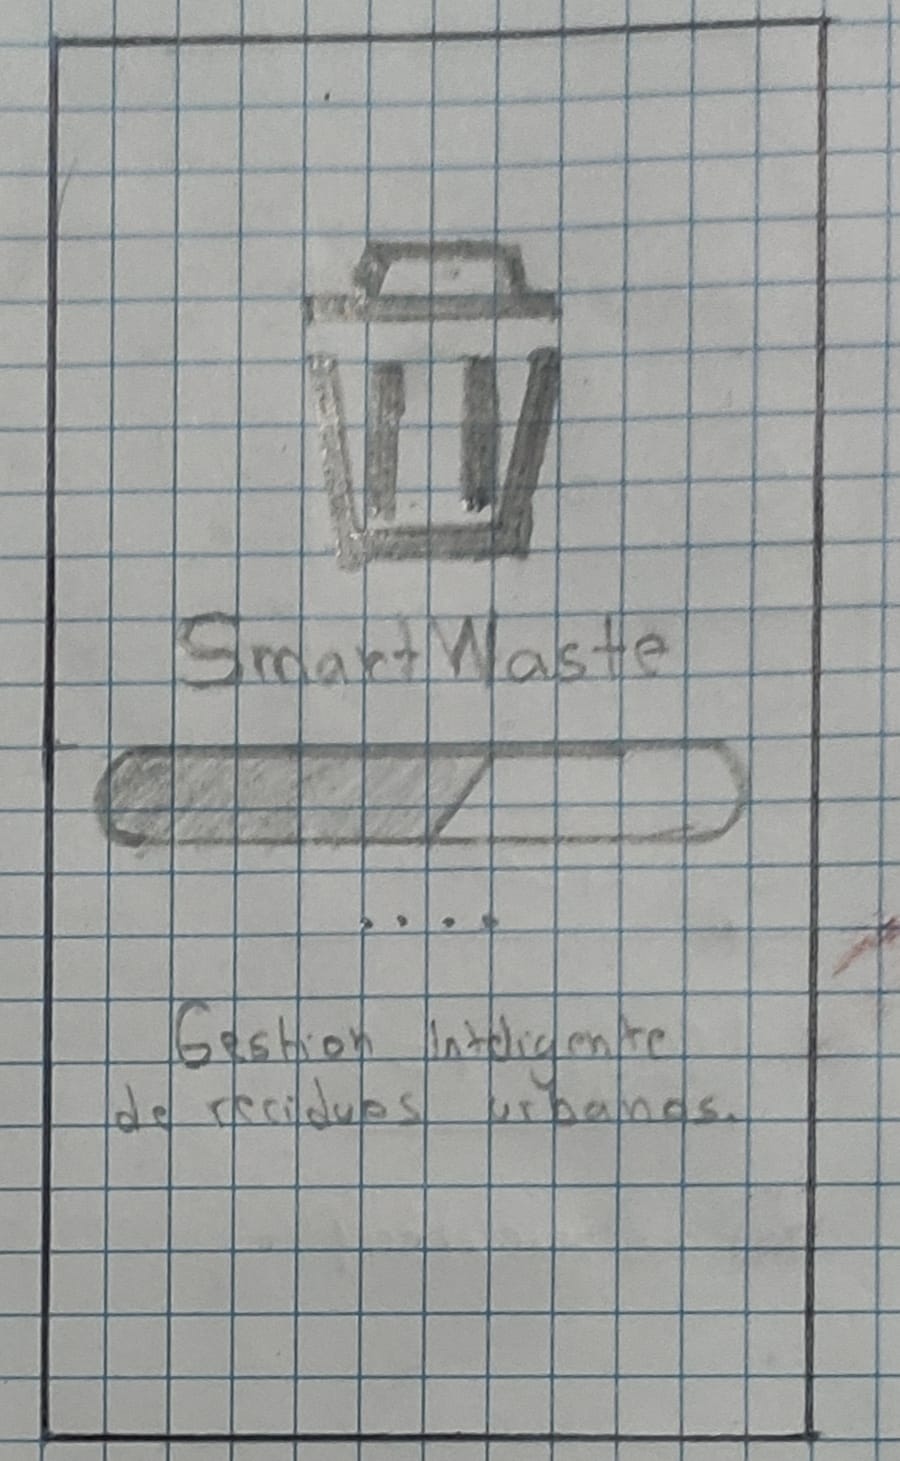 Smart Waste
Gestion Inteligente
de reciduos urbanos.